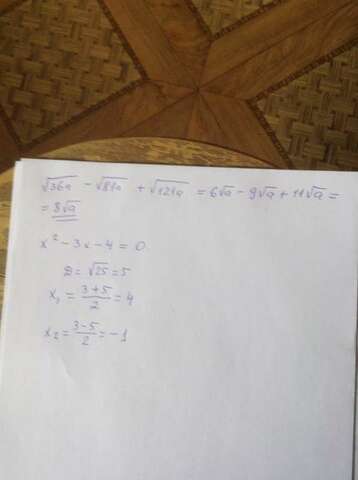 √36a - √81a + √121a = 6√a - 9√a + 11√a =
= 8√a
x² - 3x - 4 = 0
D = √25 = 5
x₁ = (3+5)/2 = 4
x₂ = (3-5)/2 = -1